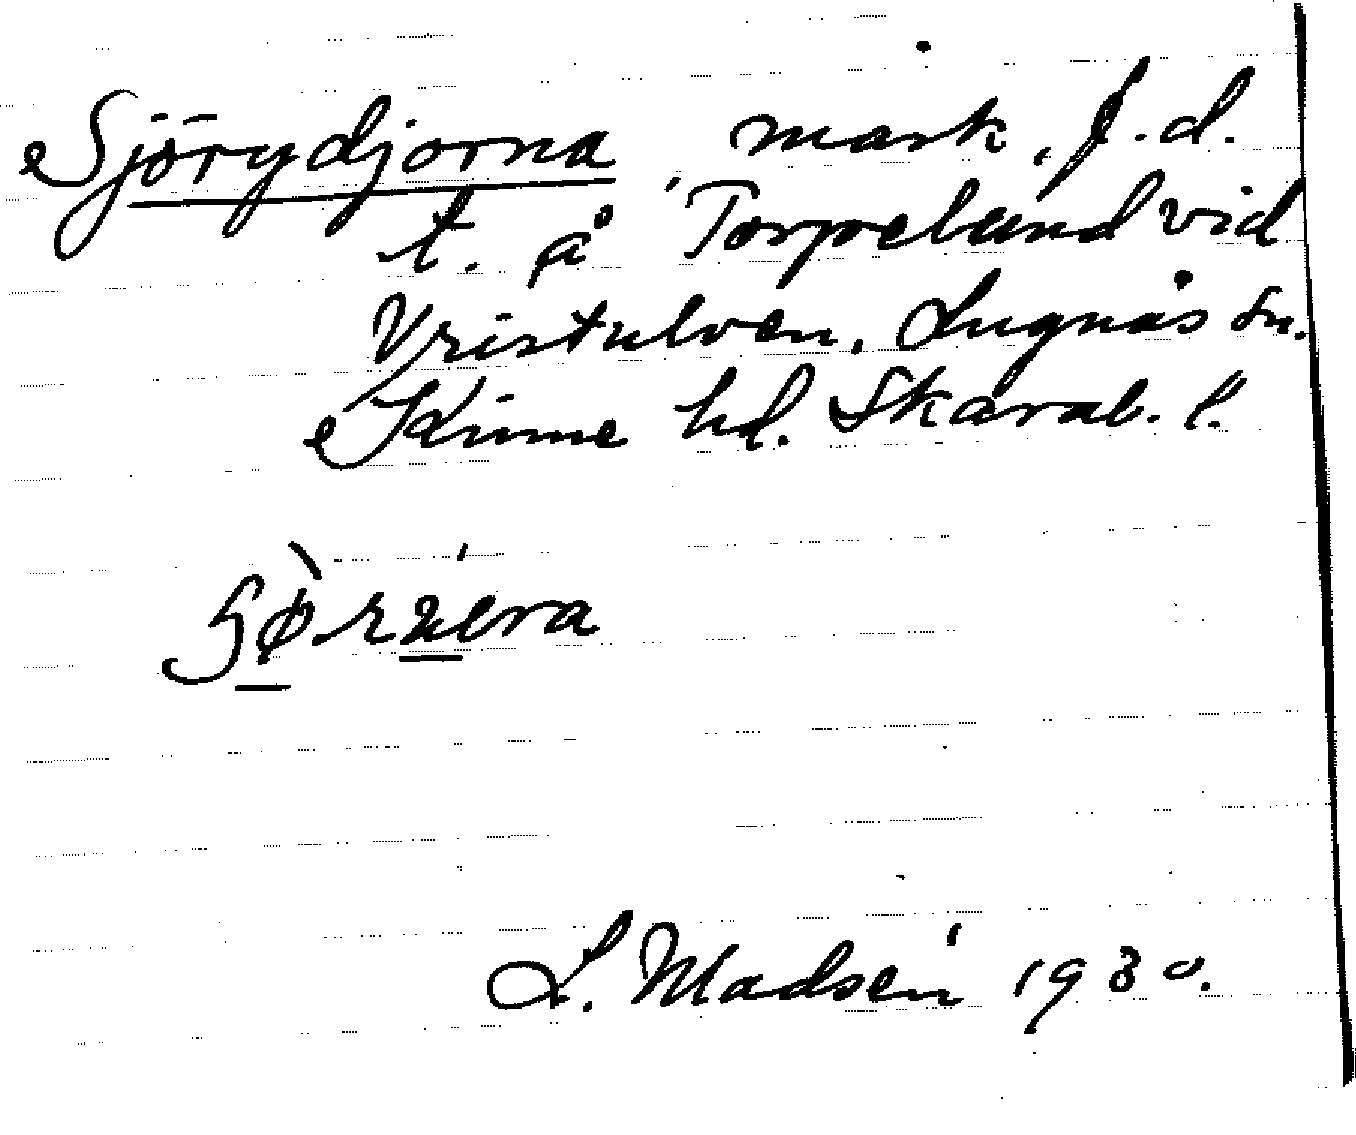 Sjörydjorna mark, f.d.
t. på Torpelund vid
Vristulven, Lugnås sn.
Kinne hd. Skarab. l.
L. Madsén 1930.